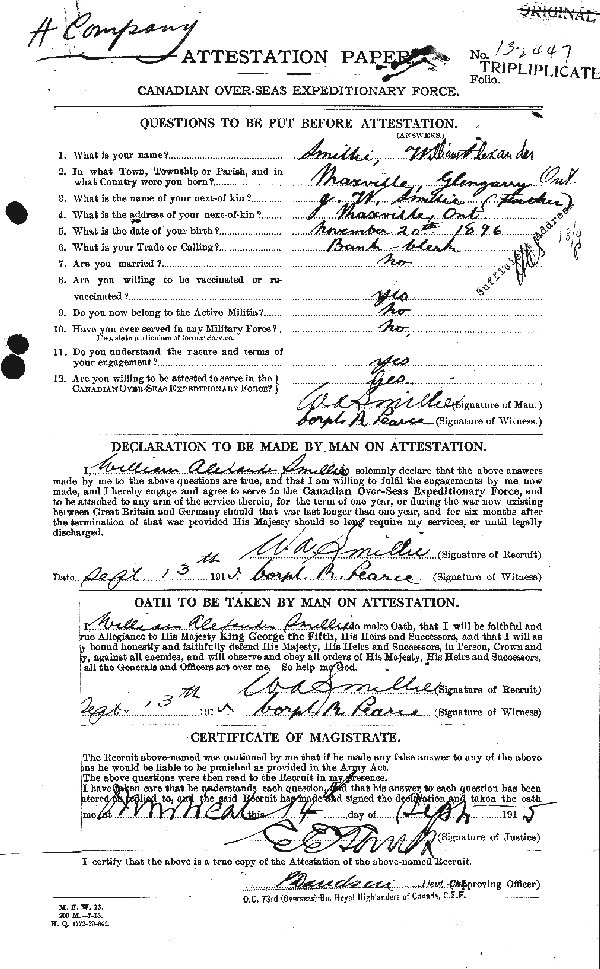 ORIGINAL
A Company
ATTESTATION PAPER
No. 132447
TRIPLIPLICATE
Folio.
CANADIAN OVER-SEAS EXPEDITIONARY FORCE.
QUESTIONS TO BE PUT BEFORE ATTESTATION.
(ANSWERS)
1. What is your name? Smillie, William Alexander
2. In what Town, Township or Parish, and in
what Country were you born? Maxville, Glengarry Ont.
3. What is the name of your next-of kin? J. W. Smillie (Father)
4. What is the address of your next-of-kin? Maxville, Ont
5. What is the date of your birth? November 20th 1896
6. What is your Trade or Calling? Bank-clerk
7. Are you married? no
8. Are you willing to be vaccinated or re-
vaccinated? yes
9. Do you now belong to the Active Militia? no
10. Have you ever served in any Military Force? no
If so, state particulars of former service.
11. Do you understand the nature and terms of
your engagement? yes
12. Are you willing to be attested to serve in the
CANADIAN OVER-SEAS EXPEDITIONARY FORCE? yes
W A Smillie (Signature of Man.)
Corpl. R. Pearce (Signature of Witness.)
DECLARATION TO BE MADE BY MAN ON ATTESTATION.
I, William Alexander Smillie, solemnly declare that the above answers
made by me to the above questions are true, and that I am willing to fulfil the engagements by me now
made, and I hereby engage and agree to serve in the Canadian Over-Seas Expeditionary Force, and
to be attached to any arm of the service therein, for the term of one year, or during the war now existing
between Great Britain and Germany should that war last longer than one year, and for six months after
the termination of that war provided His Majesty should so long require my services, or until legally
discharged.
W A Smillie (Signature of Recruit)
Date Sept 13th 1915 Corpl. R. Pearce (Signature of Witness)
OATH TO BE TAKEN BY MAN ON ATTESTATION.
I, William Alexander Smillie, do make Oath, that I will be faithful and
rue Allegiance to His Majesty King George the Fifth, His Heirs and Successors, and that I will as
y bound honestly and faithfully defend His Majesty, His Heirs and Successors, in Person, Crown and
y, against all enemies, and will observe and obey all orders of His Majesty, His Heirs and Successors,
all the Generals and Officers set over me. So help me God.
W A Smillie (Signature of Recruit)
Sept. 13th 1915 Corpl. R. Pearce (Signature of Witness)
CERTIFICATE OF MAGISTRATE.
The Recruit above-named was cautioned by me that if he made any false answer to any of the above
ons he would be liable to be punished as provided in the Army Act.
The above questions were then read to the Recruit in my presence.
I have taken care that he understands each question, and that his answer to each question has been
ntered as replied to, and the said Recruit has made and signed the declaration and taken the oath
me at Montreal this 14 day of Sept 1915
(Signature of Justice)
I certify that the above is a true copy of the Attestation of the above-named Recruit.
(Approving Officer)
O.C. 73rd (Overseas) Bn. Royal Highlanders of Canada, C.E.F.
M. F. W. 23.
200 M.—7-15.
H. Q. 1772-39-841.